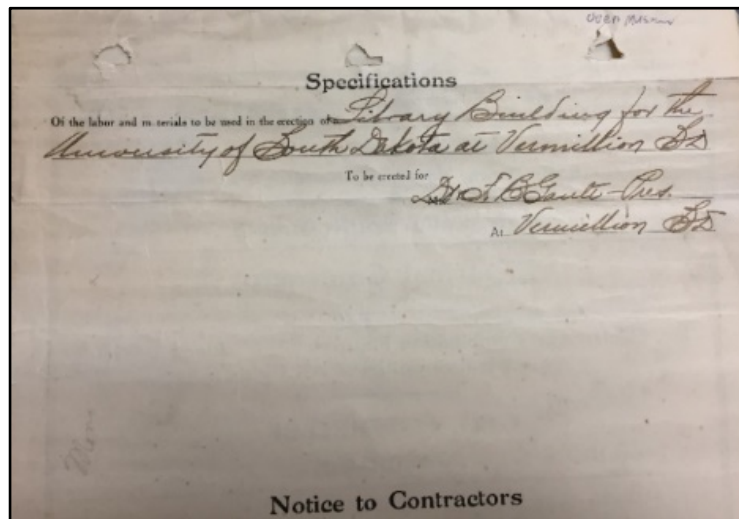 Specifications
Of the labor and materials to be used in the erection of Library Building for the
University of South Dakota at Vermillion SD
To be erected for
Dr. F. B. Gault - Pres.
At Vermillion SD
Notice to Contractors